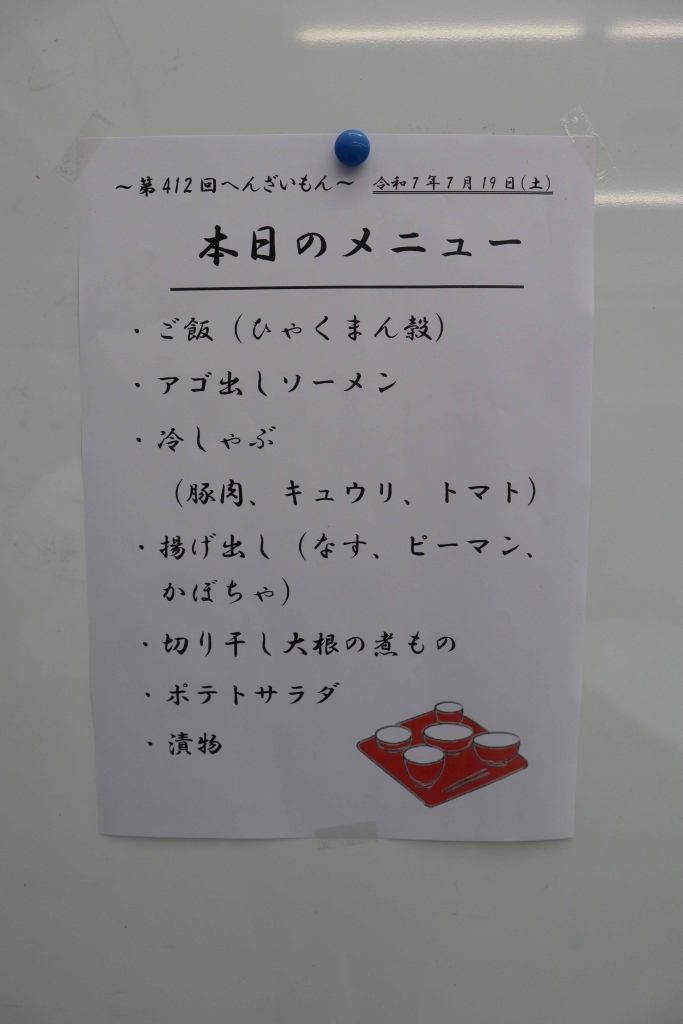 ～第412回へんざいもん～ 令和7年7月19日(土)
本日のメニュー
・ご飯（ひゃくまん穀）
・アゴ出しソーメン
・冷しゃぶ
（豚肉、キュウリ、トマト）
・揚げ出し（なす、ピーマン、
かぼちゃ）
・切り干し大根の煮もの
・ポテトサラダ
・漬物